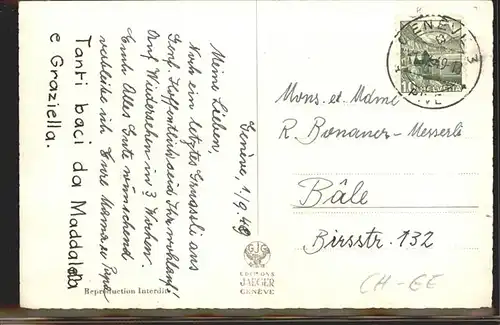 Genève, 1/9.49
Meine Lieben,
Noch ein letztes Gruessli aus
Genf. Hoffentlich seid Ihr wohlauf!
Auf Wiedersehen in 3 Wochen.
Euch Alles Gute wünschend
verbleibe ich Eure Mama
Tanti baci da Maddalena
e Graziella.
Reproduction Interdite
EDITIONS
JAEGER
GENÈVE
GENÈVE 3
HELVETIA
Mons. et. Mdme
R. Bonauer-Messerli
Bâle
Birsstr. 132
CH-GE